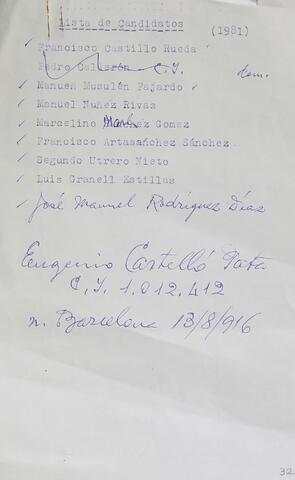 Lista de Candidatos (1981)
Francisco Castillo Rueda
Pedro Calderón C.I. dem.
Manuel Musulén Fajardo
Manuel Nuñez Rivas
Marcelino Gomez
Francisco Artasánchez Sánchez
Segundo Utrero Nieto
Luis Granell Estillas
José Manuel Rodríguez Díaz
Eugenio Castelló
C.I. 1.012.412
n. Barcelona 13/8/916
32